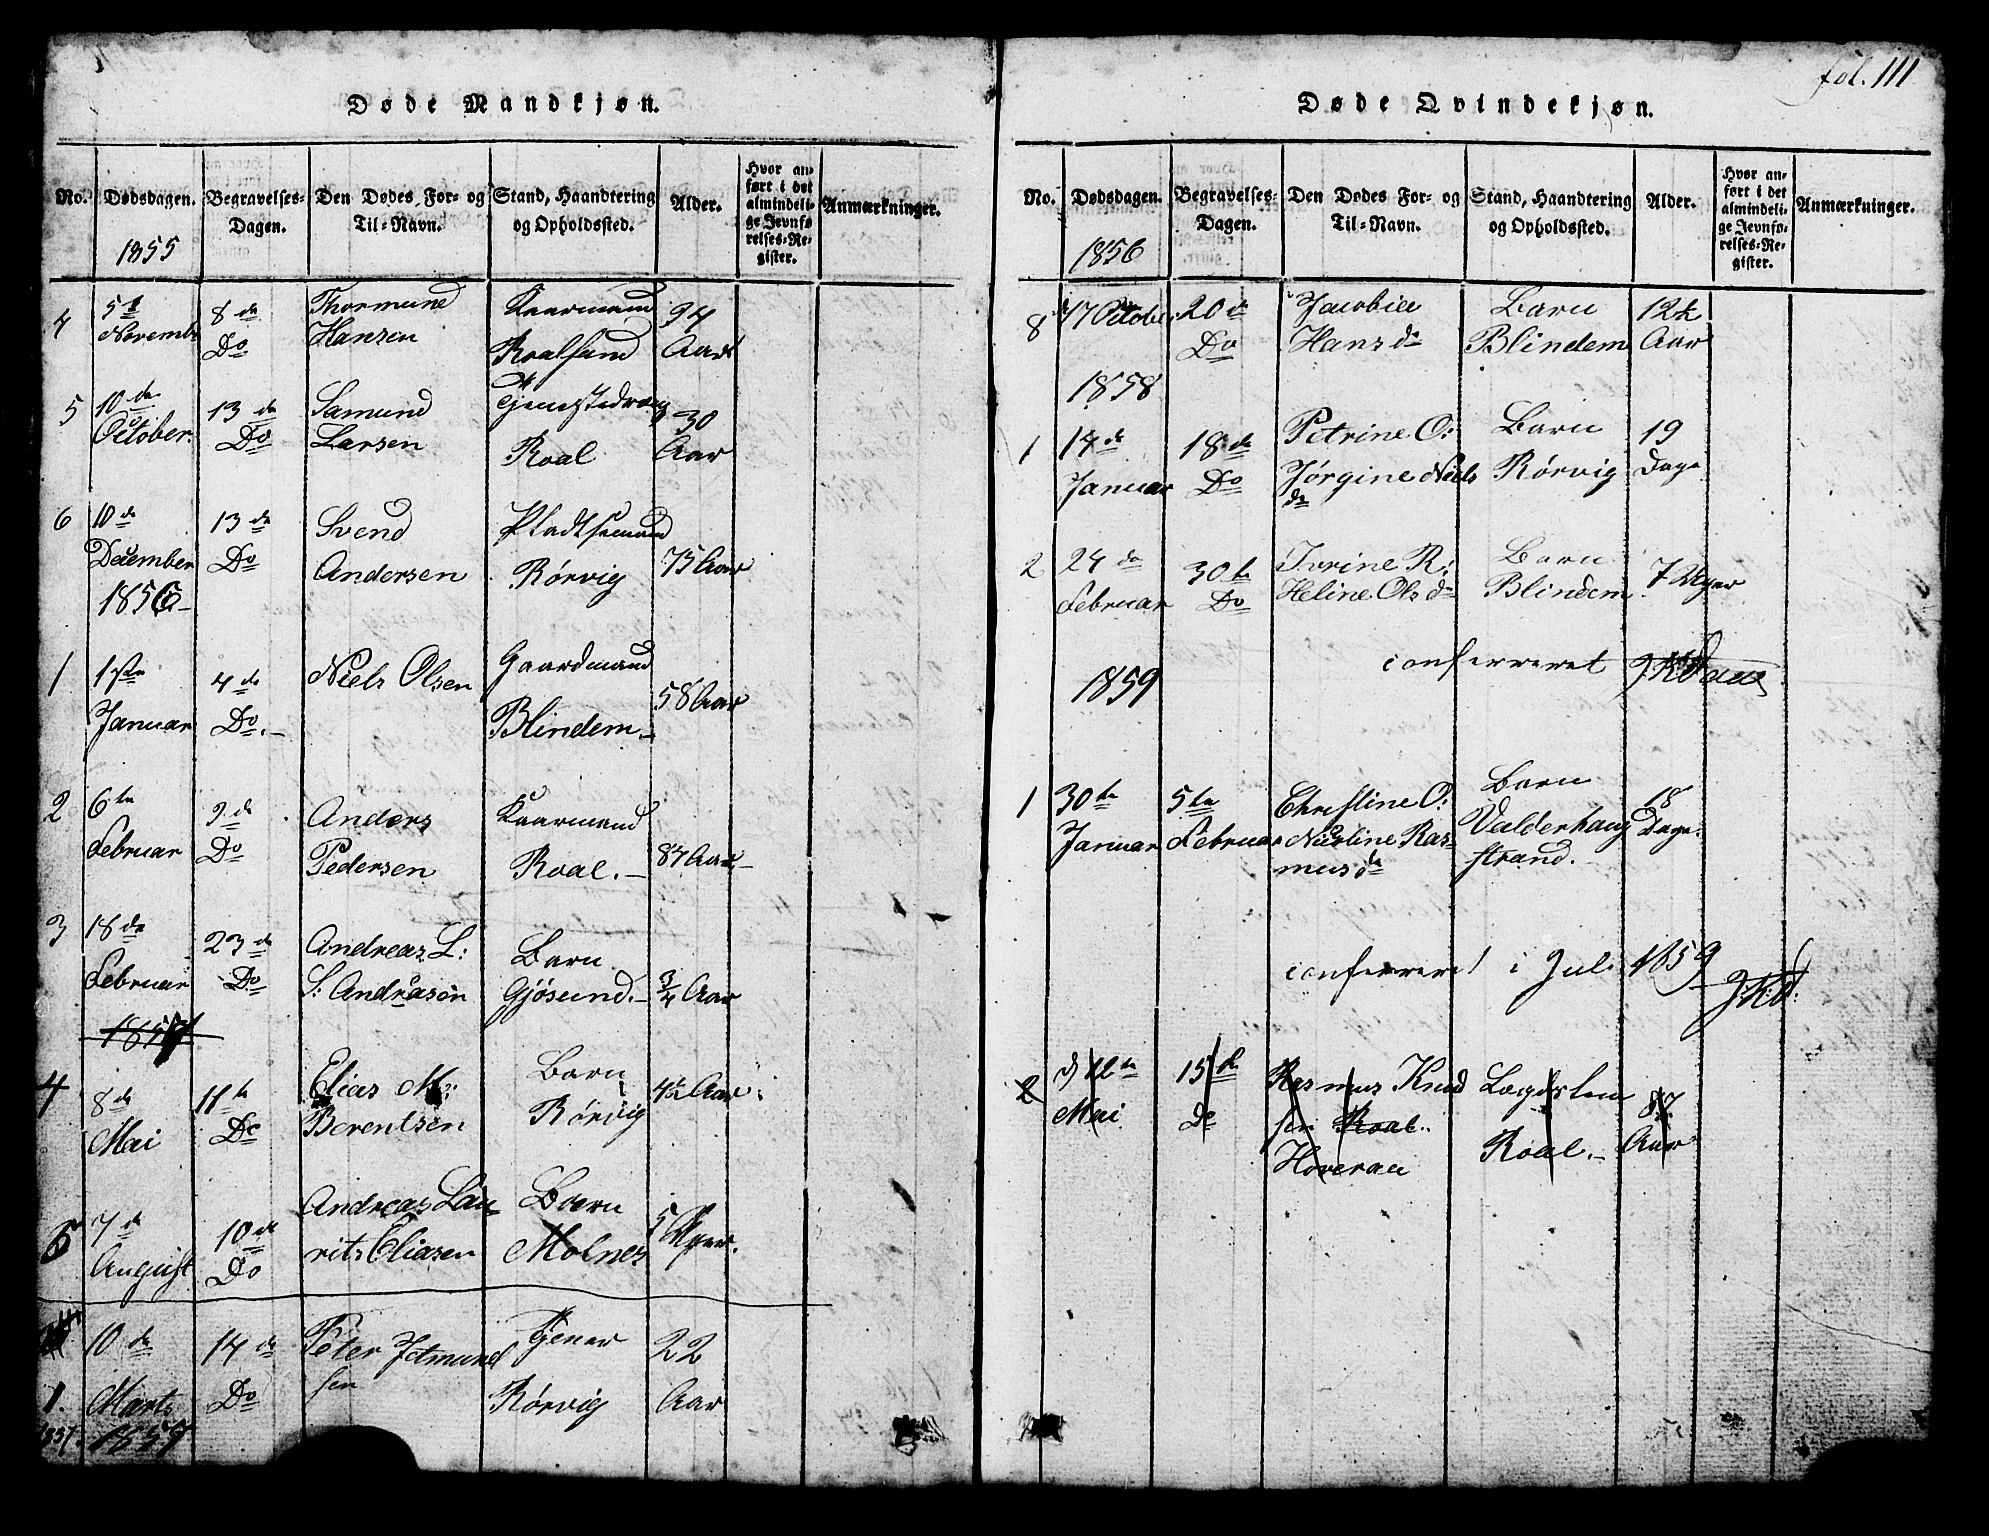 fol. 111
Døde Mandkjøn.
No. Dødsdagen. Begravelses-Dagen. Den Dødes For- og Til-Navn. Stand, Haandtering og Opholdssted. Alder. Hvor anført i det almindelige Jevnførelses-Register. Anmærkninger.
1855
4 5te 8de Thormund Kaarmand 94
Novembr Do Hansen Roalsund Aar
5 10de 13de Samund Tjenestedreng 30
October. Do Larsen Roal Aar
6 10de 13de Svend Pladtsemand
December Do Andersen Rørvig 75 Aar
1856
1 1ste 4de Niels Olsen Gaardmand 58 Aar
Januar Do. Blindem.
2 6te 9de Anders Kaarmand
Februar Do Pedersen Roal. 87 Aar
3 18de 23de Andreas L: Barn
Februar Do S: Andreasen Gjøsund. 3/4 Aar
1857
4 8de 11te Elias M: Barn 4½ Aar.
Mai Do Berentsen Rørvig
5 7de 10de Andreas Lau Barn 5 Uger.
August Do rits Eliasen Molnes
10de 14de Peter Jetmund Tjener 22
1. Marts Do sen Rørvig Aar
1857. 1857
Døde Qvindekjøn.
No. Dødsdagen. Begravelses-Dagen. Den Dødes For- og Til-Navn. Stand, Haandtering og Opholdssted. Alder. Hvor anført i det almindelige Jevnførelses-Register. Anmærkninger.
1856
8 17 October 20de Jacobia Barn 12½
Do Hansda Blindem Aar
1858
1 14de 18de Petrine O: Barn 19
Januar Do Jørgine Niels Rørvig Dage
da
2 24de 30te Ivrine R: Barn 7 Uger
Februar Do Heline Olsda Blindem
conferreret
1859
1 30te 5te Christine O: Barn 18
Januar Februar Nicoline Ras Valderhaug Dage.
musda strand.
conferreret i Juli 1859
2 d 12te 15de Rasmus Knud Lægdslem 87
Mai Do sen Roal. Roal. Aar